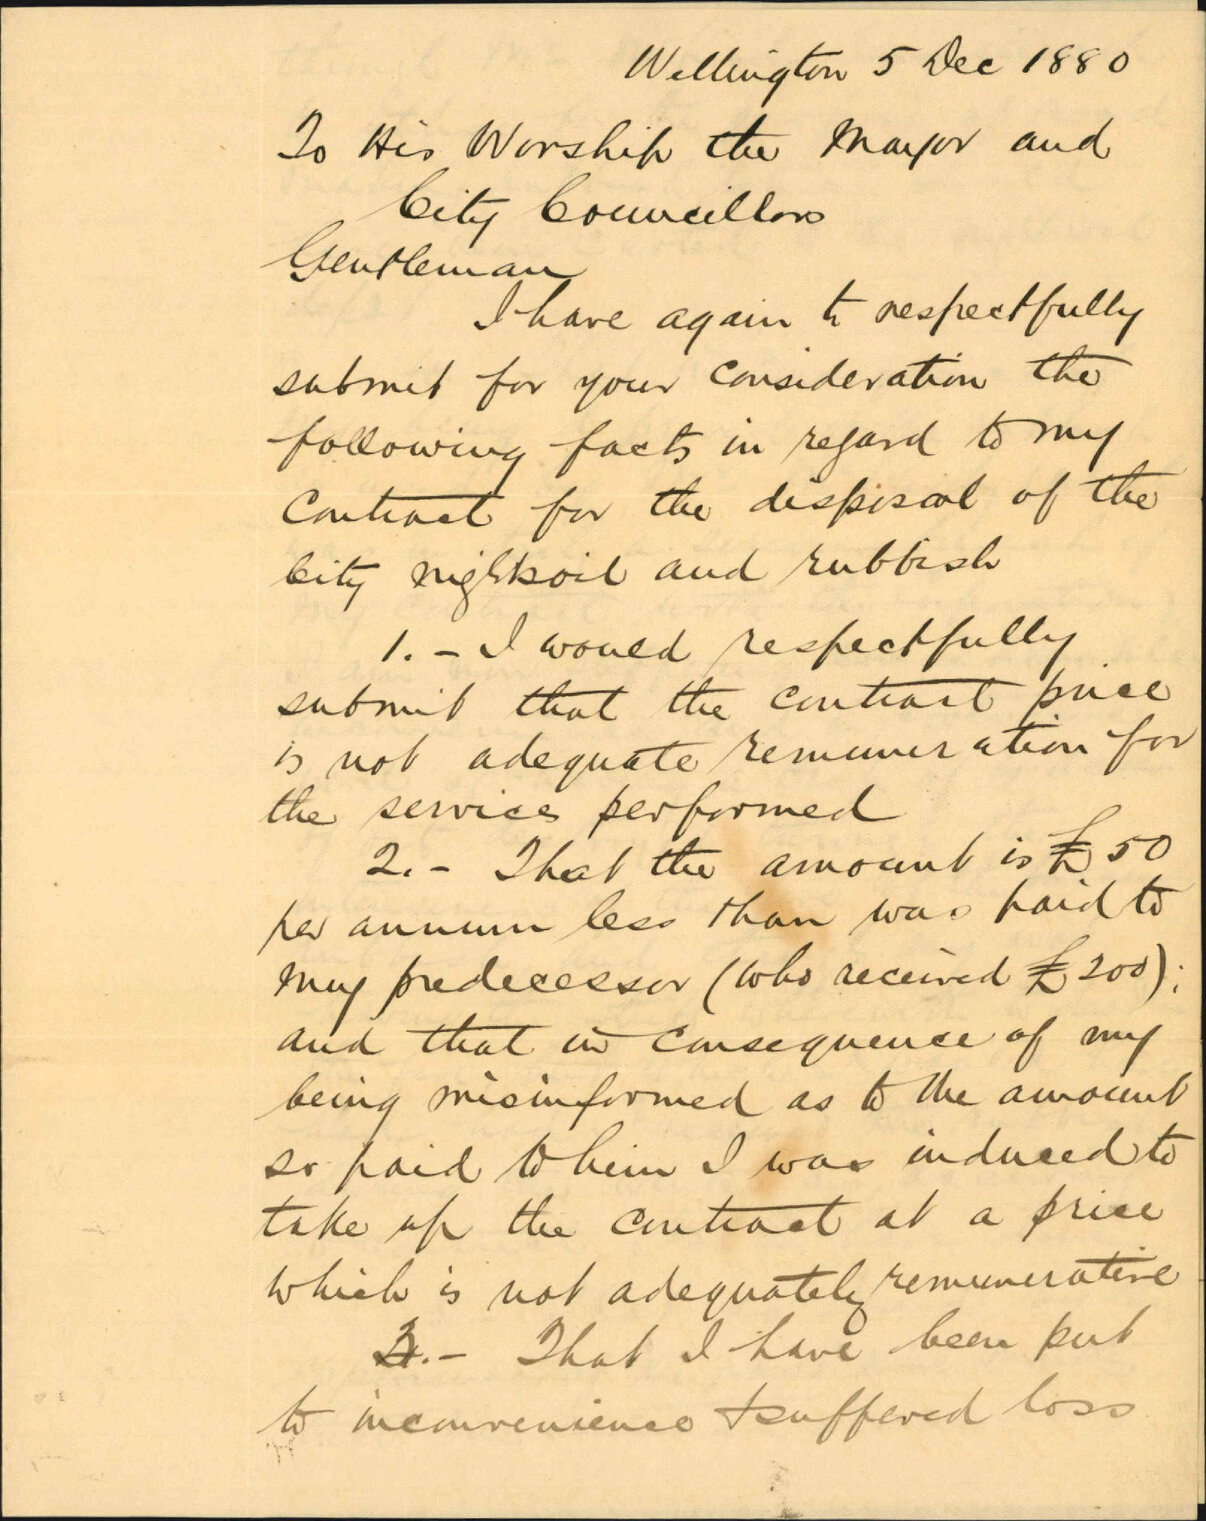 Wellington 5 Dec 1880
To His Worship the Mayor and
City Councillors
Gentleman
I have again to respectfully
submit for your consideration the
following facts in regard to my
contract for the disposal of the
City nightsoil and rubbish
1. - I would respectfully
submit that the contract price
is not adequate remuneration for
the services performed
2. - That the amount is £50
per annum less than was paid to
my predecessor (who received £200);
and that in consequence of my
being misinformed as to the amount
so paid to him I was induced to
take up the contract at a price
which is not adequately remunerative
3. - That I have been put
to inconvenience & suffered loss